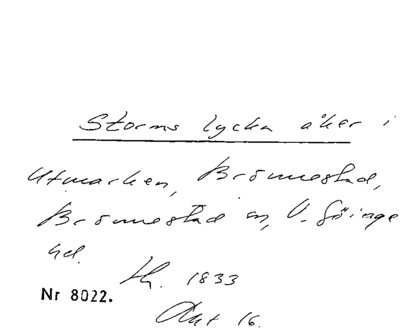 Storms lycka åker i
Utmarken, Brönnestad,
Brönnestad sn, V. Göinge
hd.
Lh. 1833
Nr 8022.
Akt 16.